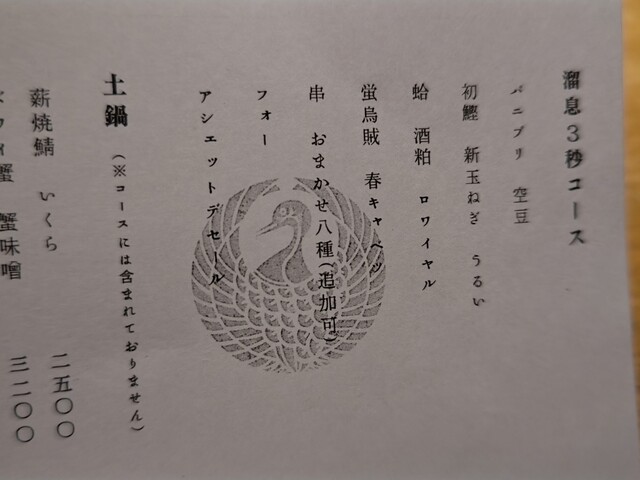 溜息3秒コース
パニプリ 空豆
初鰹 新玉ねぎ うるい
蛤 酒粕 ロワイヤル
蛍烏賊 春キャベツ
串 おまかせ八種(追加可)
フォー
アシェットデセール
土鍋 (※コースには含まれておりません)
薪焼鯖 いくら 二五〇〇
ズワイ蟹 蟹味噌 三二〇〇